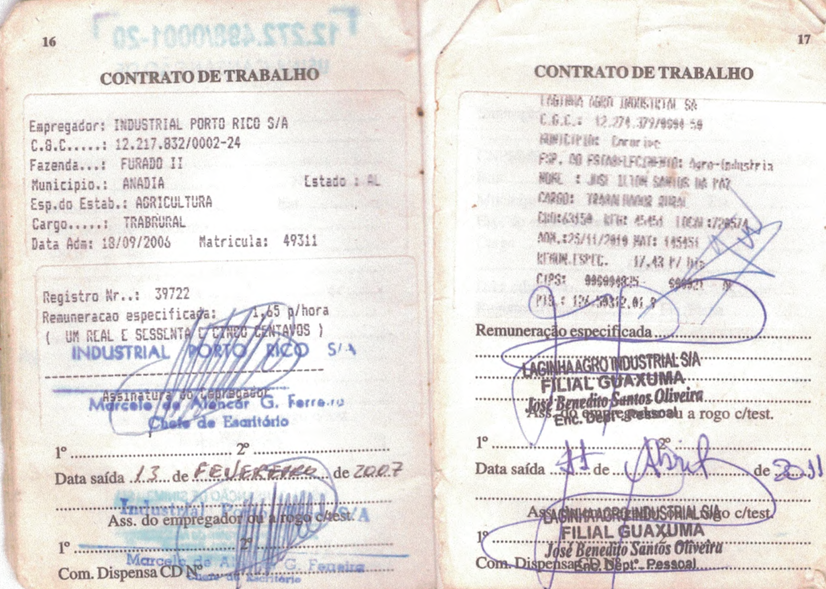 16
CONTRATO DE TRABALHO
Empregador: INDUSTRIAL PORTO RICO S/A
C.G.C.....: 12.217.832/0002-24
Fazenda...: FURADO II
Municipio.: ANADIA Estado : AL
Esp.do Estab.: AGRICULTURA
Cargo.....: TRABRURAL
Data Adm: 18/09/2006 Matricula: 49311
Registro Nr..: 39722
Remuneracao especificada: 1,65 p/hora
( UM REAL E SESSENTA E CINCO CENTAVOS )
INDUSTRIAL PORTO RICO S/A
Assinatura do Empregador
Marcelo de Alencar G. Ferreira
Chefe de Escritório
1º 2º
Data saída 13 de FEVEREIRO de 2007
Industrial S/A
Ass. do empregador ou a rogo c/test.
1º 2º
Marcelo de A G. Ferreira
Com. Dispensa CD Nº
Chefe de Escritório
17
CONTRATO DE TRABALHO
LAGINHA AGRO INDUSTRIAL SA
C.G.C.: 12.274.379/
MUNICIPIO: Coruripe
ESP. DO ESTABELECIMENTO: Agro-industria
NOME : JOSE ILTON SANTOS DA PAZ
CARGO: TRABALHADOR RURAL
ADM.:25/11/2010 MAT: 145451
REMUN.ESPEC. 17,43 P/ Dia
CTPS:
PIS.:
Remuneração especificada
LAGINHA AGRO INDUSTRIAL S/A
FILIAL GUAXUMA
José Benedito Santos Oliveira
Ass. do empregador ou a rogo c/test.
Enc. Deptº. Pessoal
1º 2º
Data saída 11 de Abril de 2011
Ass. c/test.
LAGINHA AGRO INDUSTRIAL S/A
FILIAL GUAXUMA
1º
José Benedito Santos Oliveira
Com. Dispensa
Enc. Deptº. Pessoal